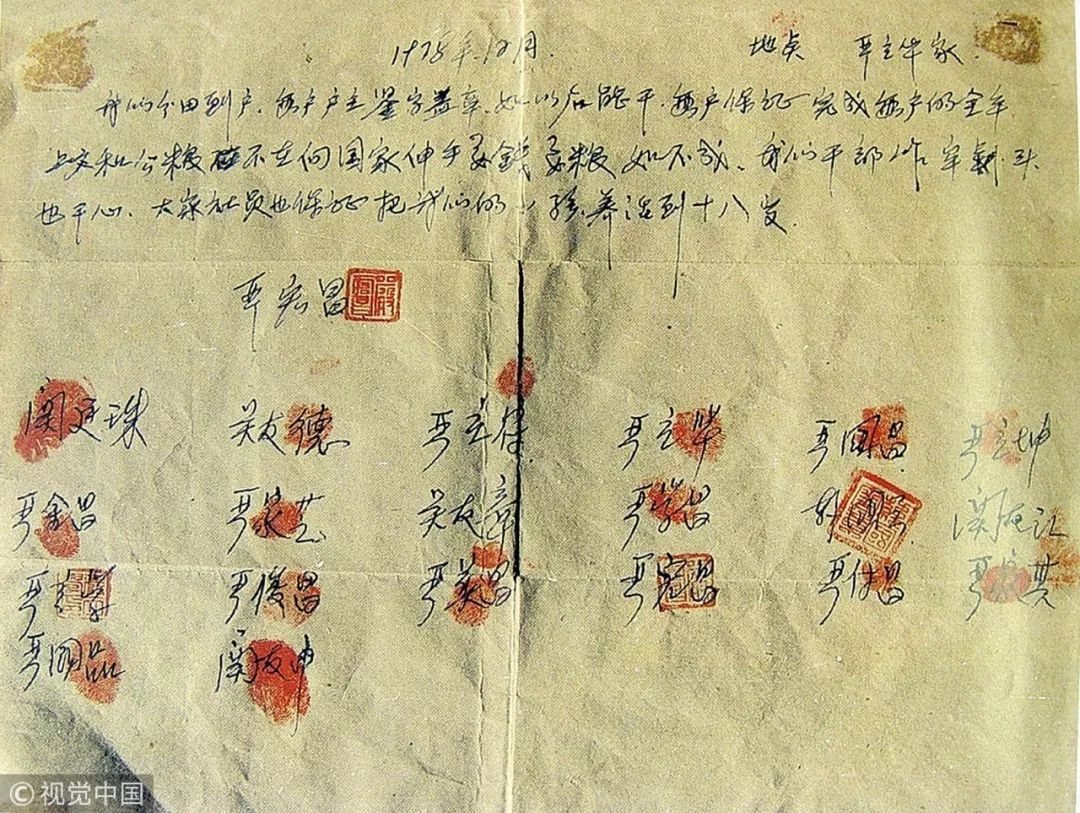 1978年12月. 地点 严立华家.
我们分田到户.每户户主鉴字盖章.如以后能干.每户保证完成每户的全年
上交和公粮 不在向国家伸手要钱要粮 如不成.我们干部作牢剎头
也干心.大家社员也保证把我们的小孩养活到十八岁.
严宏昌
关廷珠 关友德 严立符 严立华 严国昌 严立坤
严金昌 严家芝 关友章 严学昌 韩国云 关友江
严立学 严俊昌 严美昌 严宏昌 严付昌 严家其
严国品 关友申
©视觉中国